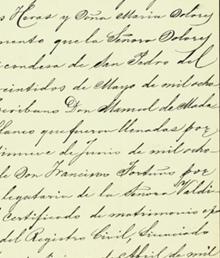 Heras y Doña Maria Dolores
mento que la Señora Dolores
Vicondesa de San Pedro del
veintidos de Mayo de mil ocho
scribano Don Manuel de Mada
blanco que fueron llenadas por
de Junio de mil ocho
de Don Francisco Fortuño por
legataria de la Señora Valdi
certificado de matrimonio
del Registro Civil,
de Abril de mil